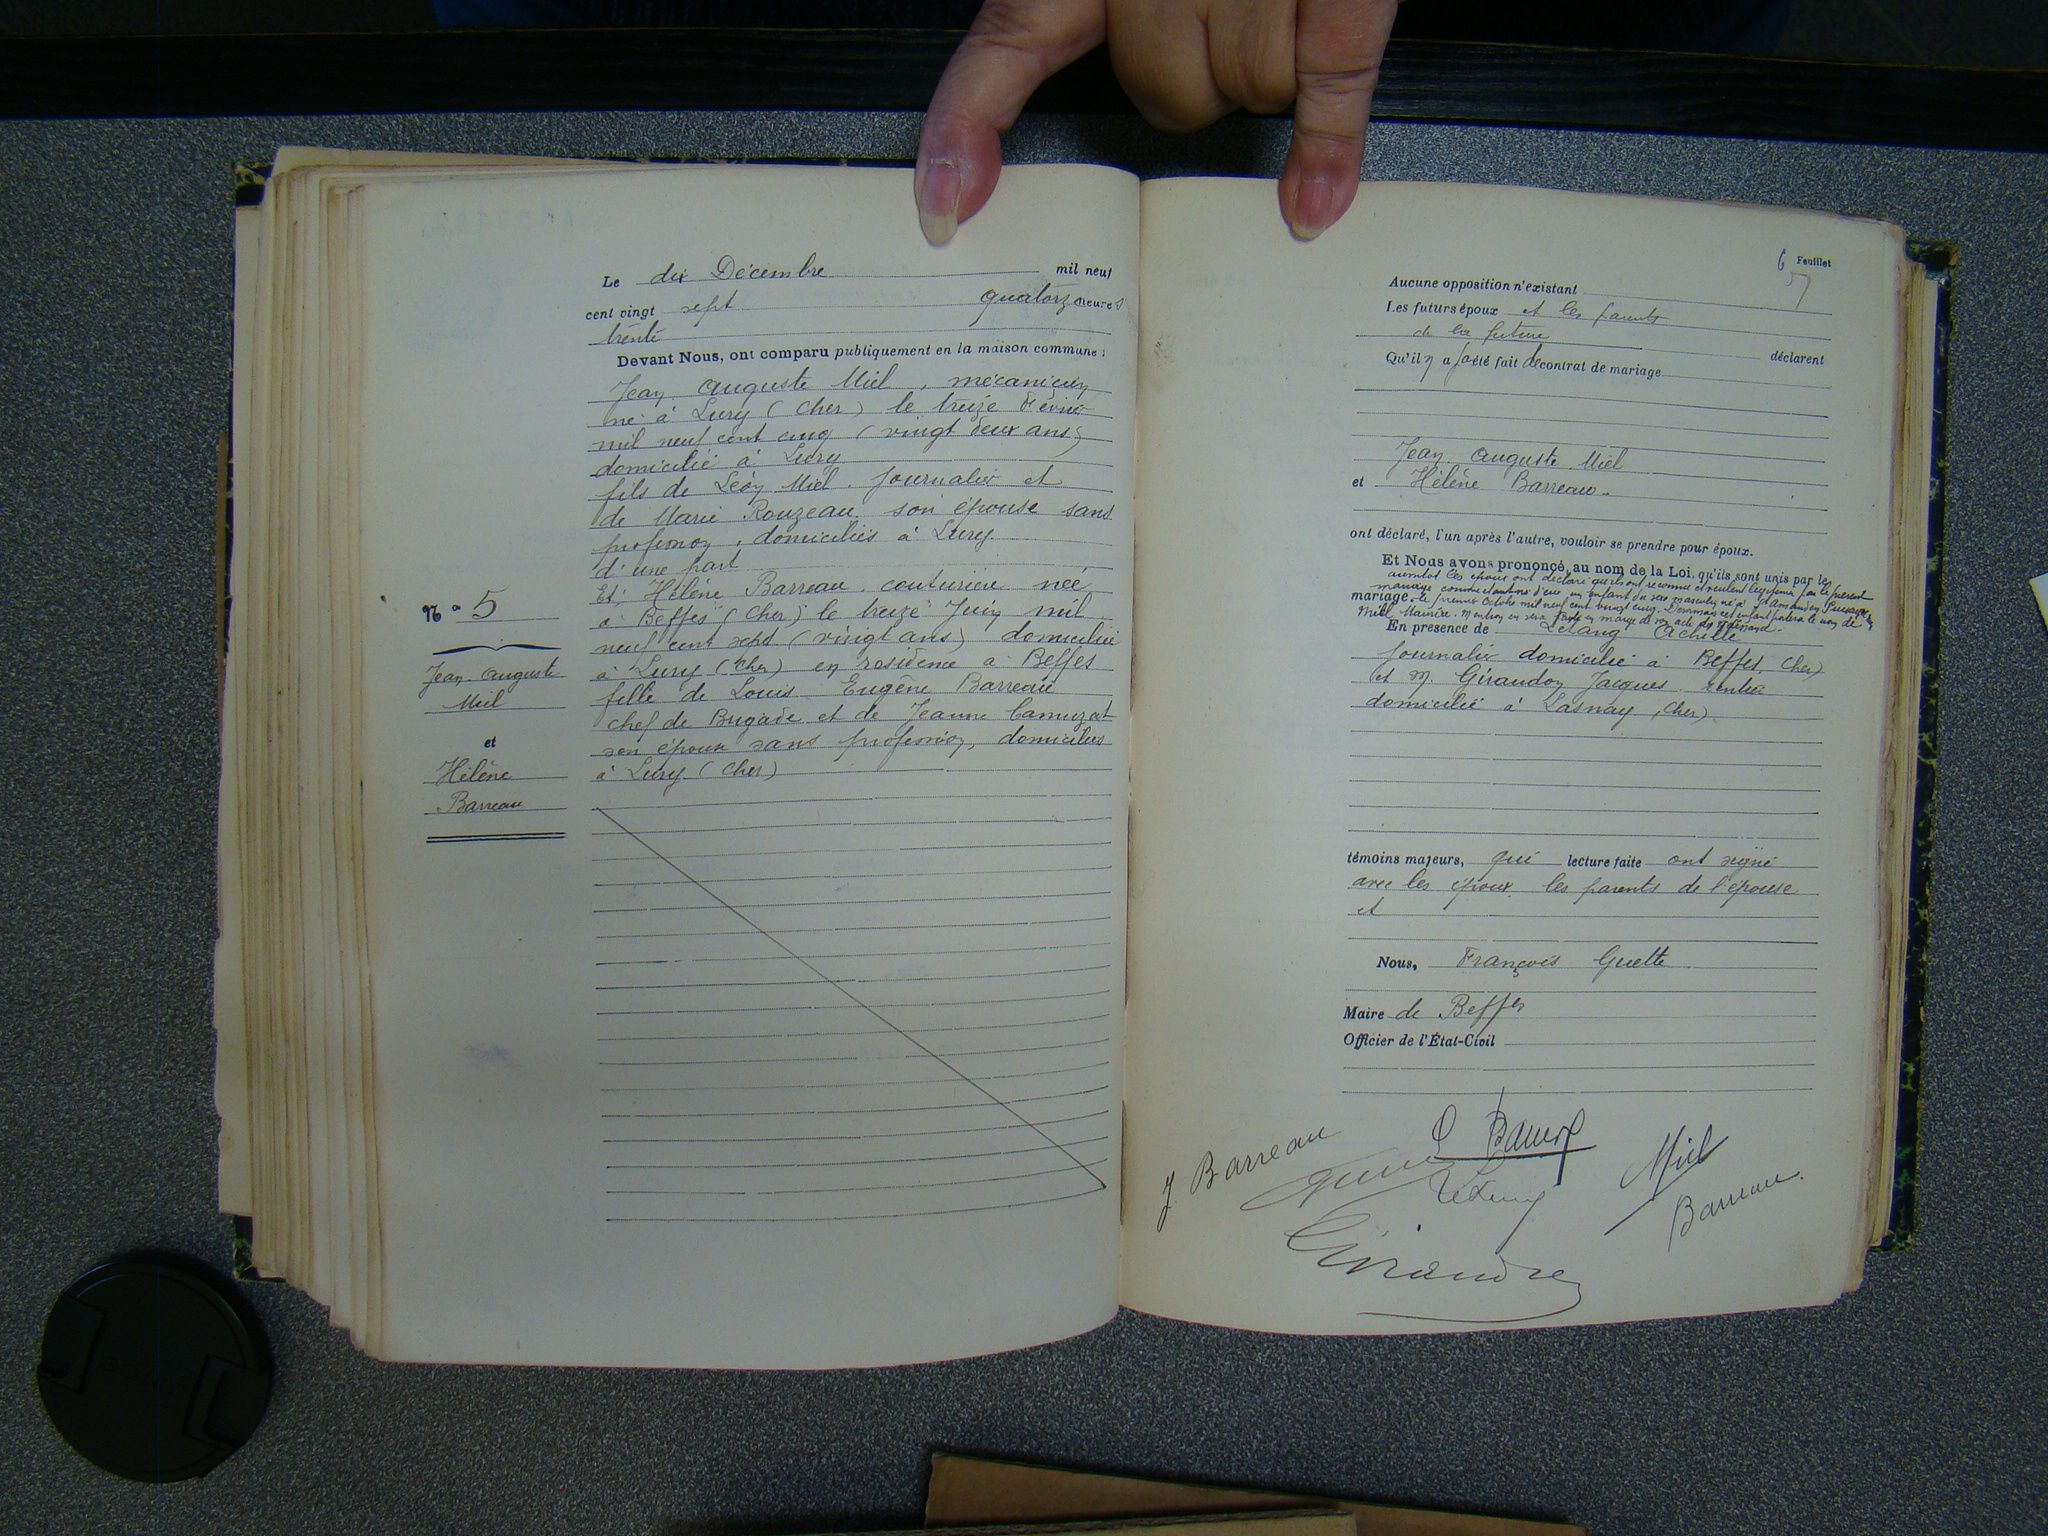 Le dix Décembre mil neuf
cent vingt sept quatorze heures
trente
Devant Nous, ont comparu publiquement en la maison commune :
Jean Auguste Miel, mécanicien
né à Lury (Cher) le treize Février
mil neuf cent cinq (vingt deux ans)
domicilié à Lury
fils de Léon Miel, journalier et
de Marie Rouzeau son épouse sans
profession, domiciliés à Lury
d'une part
Et, Hélène Barreau, couturière née
à Beffes (Cher) le treize Juin mil
neuf cent sept (vingt ans) domiciliée
à Lury (Cher) en résidence à Beffes
fille de Louis Eugène Barreau
chef de Brigade et de Jeanne Camuzat
son épouse sans profession, domiciliés
à Lury (Cher)
N° 5
Jean Auguste
Miel
et
Hélène
Barreau
6 Feuillet
57
Aucune opposition n'existant
Les futurs époux et les parents
de la future
déclarent
Qu'il n'a pas été fait de contrat de mariage
Jean Auguste Miel
et Hélène Barreau
ont déclaré, l'un après l'autre, vouloir se prendre pour époux.
Et Nous avons prononcé, au nom de la Loi, qu'ils sont unis par le
aussitôt les époux ont déclaré qu'ils ont reconnu et veulent légitimer par le présent
mariage. le premier Octobre mil neuf cent vingt cinq. Désormais cet enfant portera le nom de
Miel Maurice. Mention en sera faite en marge de son acte de
En présence de Lelang Achille
journalier domicilié à Beffes (Cher)
et M. Giraudon Jacques rentier
domicilié à Lasnay (Cher).
témoins majeurs, qui lecture faite ont signé
avec les époux les parents de l'épouse
et
Nous, François Guette
Maire de Beffes
Officier de l'État-Civil
J. Barreau
Miel
Barreau.